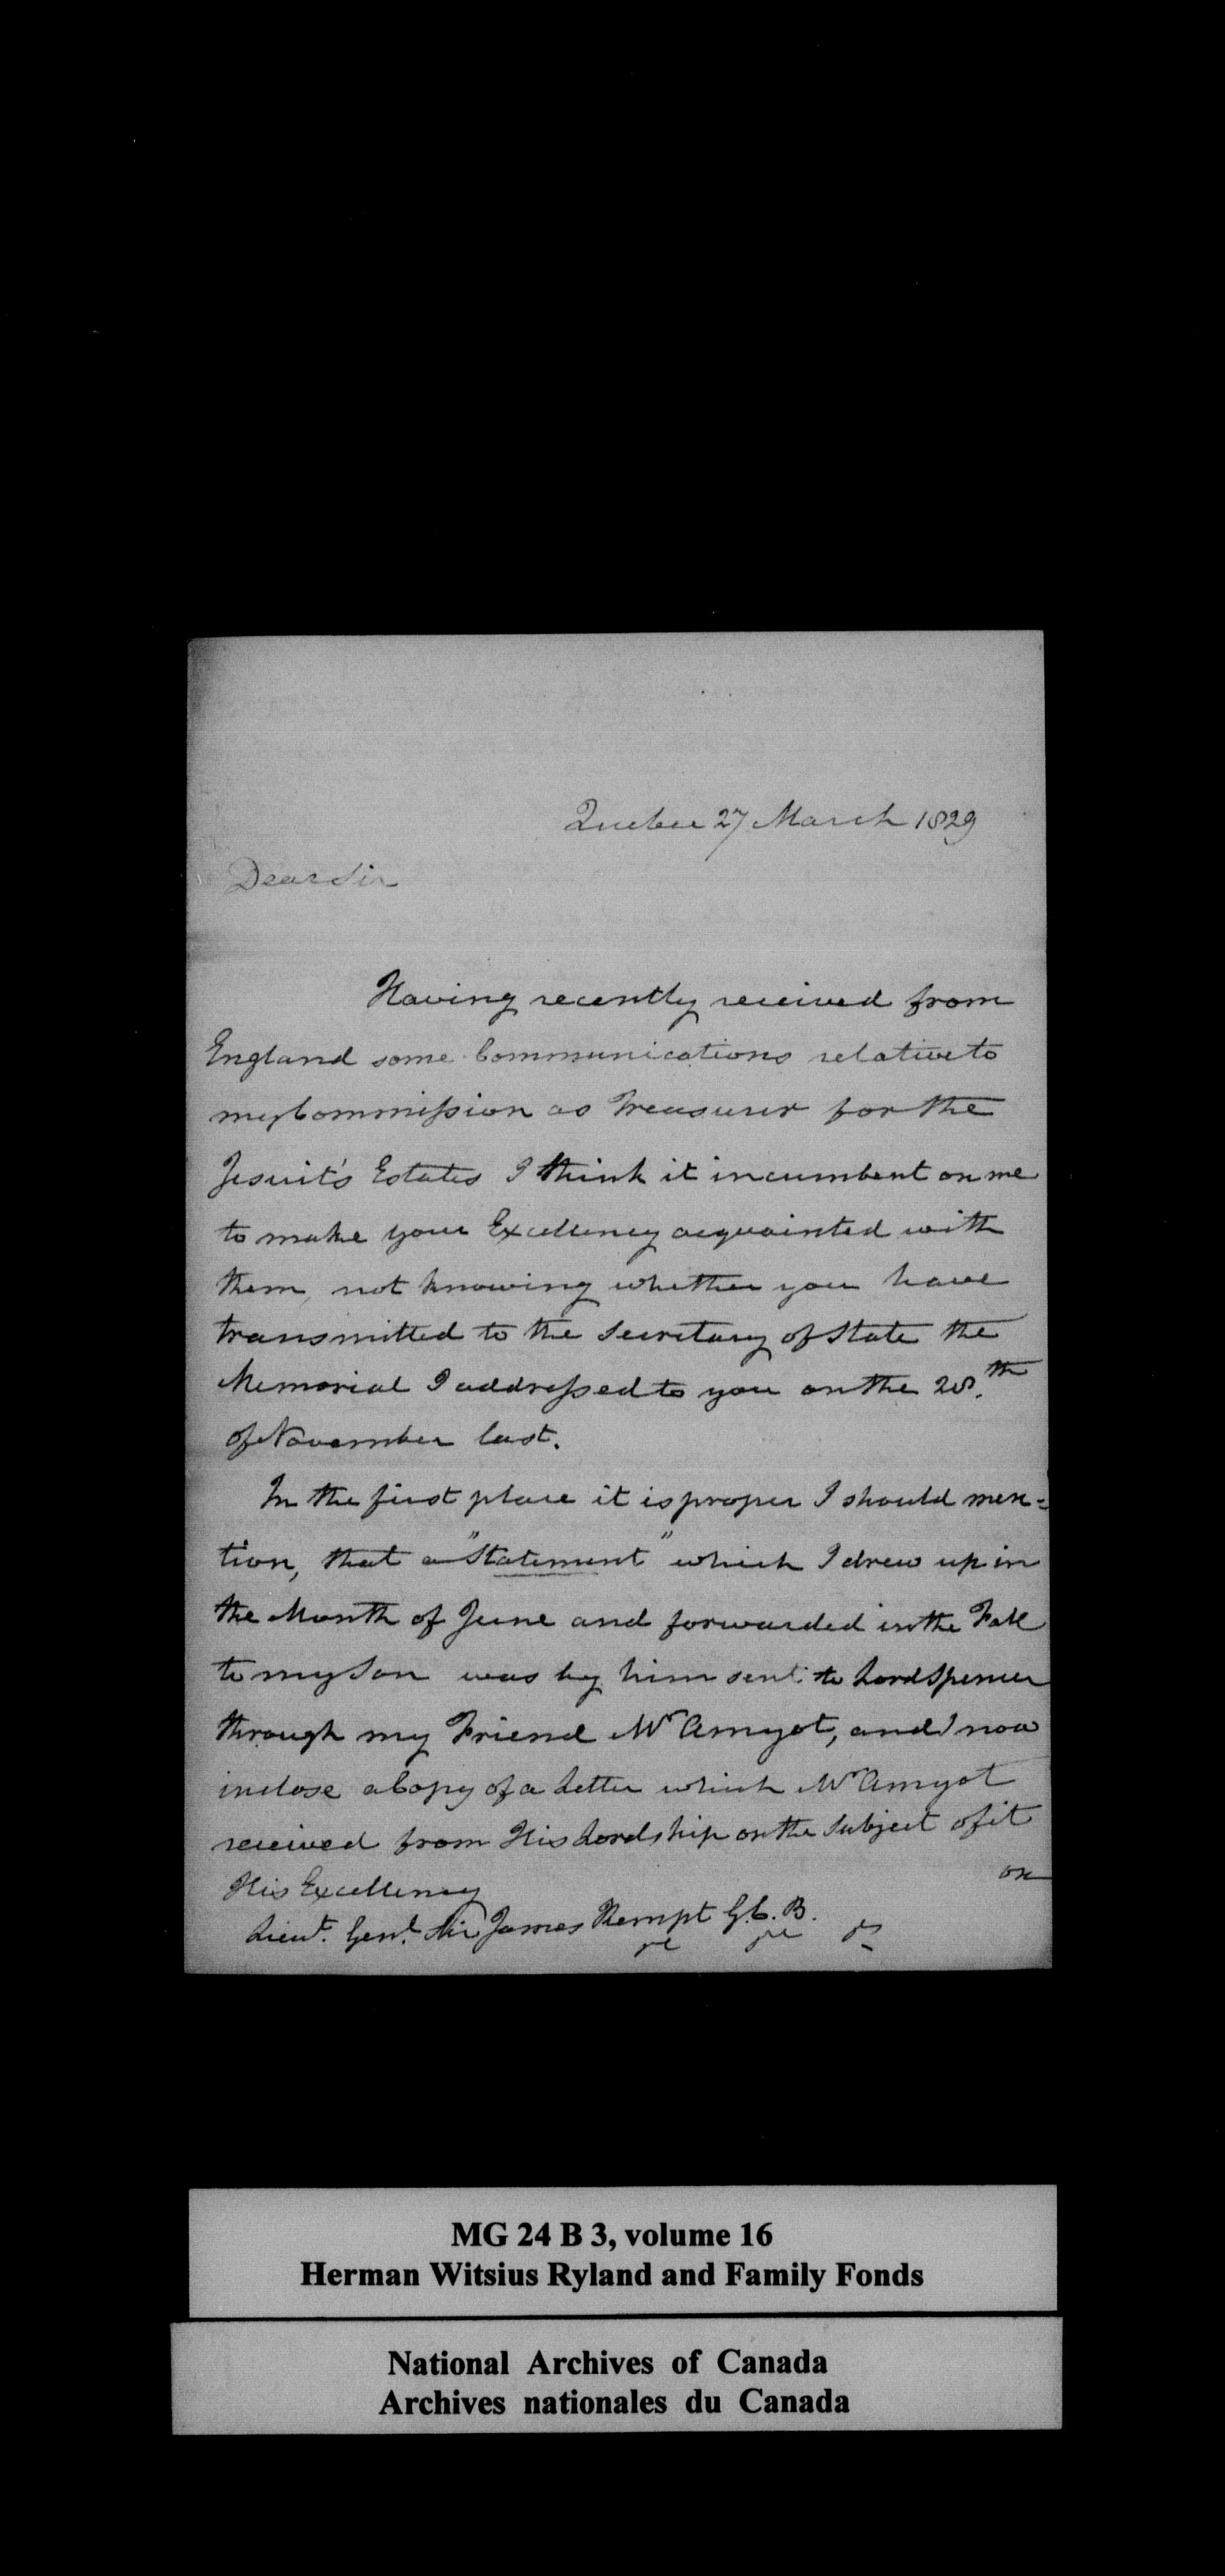 Quebec 27 March 1829
Dear Sir
Having recently received from
England some Communications relative to
my Commission as Treasurer for the
Jesuit's Estates I think it incumbent on me
to make your Excellency acquainted with
them, not knowing whether you have
transmitted to the Secretary of State the
Memorial I addressed to you on the 28.th
of November last.
In the first place it is proper I should men=
tion, that a "Statement" which I drew up in
the Month of June and forwarded in the Fall
to my Son was by him sent to Lord Spencer
through my Friend Mr Amyot, and I now
inclose a Copy of a Letter which Mr Amyot
received from His Lordship on the Subject of it
on
His Excellency
Lieut. Genl. Sir James Kempt G.C.B.
MG 24 B 3, volume 16
Herman Witsius Ryland and Family Fonds
National Archives of Canada
Archives nationales du Canada